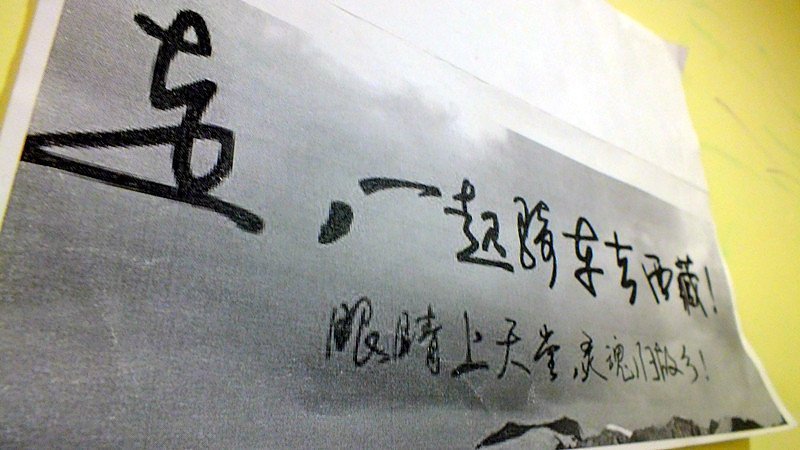 走,一起骑车去西藏!
眼睛上天堂,灵魂归故乡!